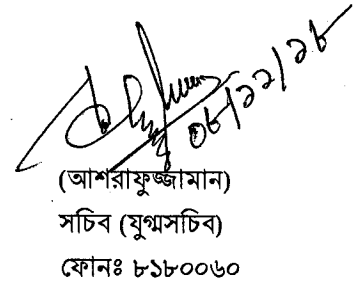 ০৮/১১/১৮
(আশরাফুজ্জামান)
সচিব (যুগ্মসচিব)
ফোনঃ ৮১৮০০৬০